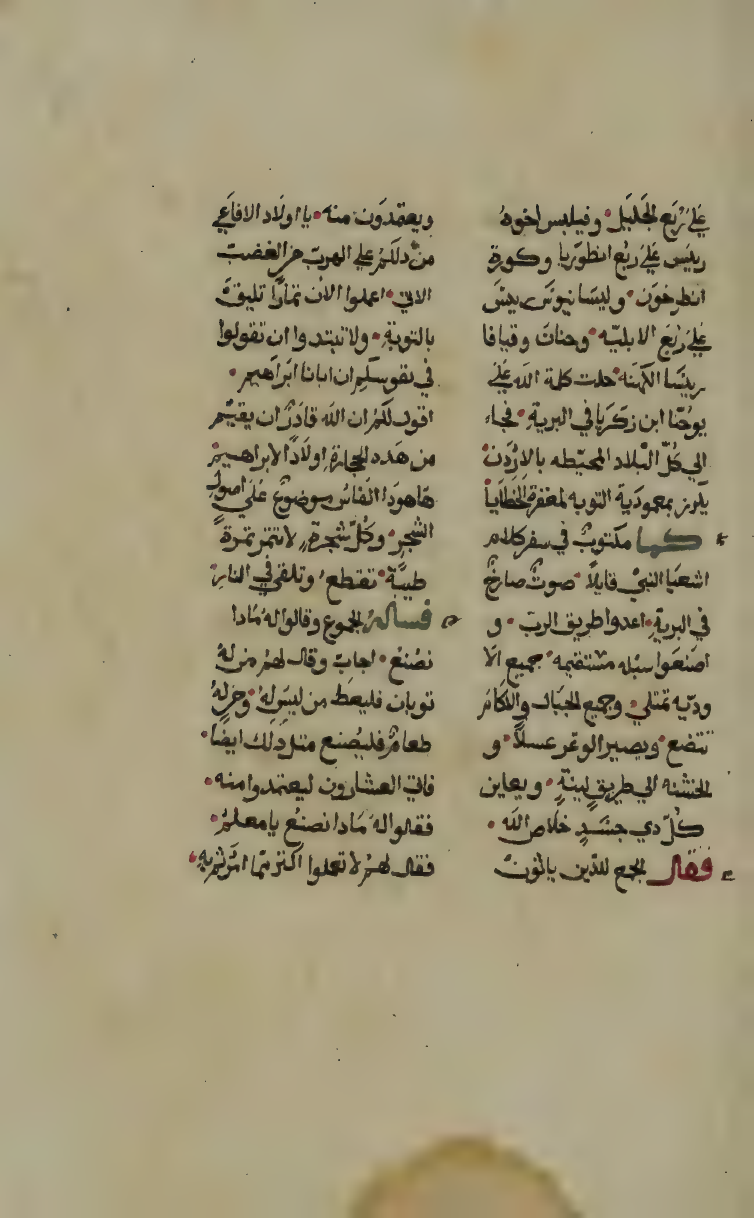 علي رُبع الجليل • وفيلبس اخوه
ريئس علي ربع انطوريا وكورة
انطرخون • وليسانيوس ريئس
علي ربع الابليه • وحنان وقيافا
ريئسا الكهنه حلت كلمة الله علي
يوحنا ابن زكريا في البرية • فجاء
الي كل البلاد المحيطه بالاردن
يكرز بمعمودية التوبه لمغفرة الخطايا
كما مكتوب في سفر كلام
اشعيا النبي قايلاً • صوت صارخ
في البرية • اعدوا طريق الرب • و
اصنعوا سبله مستقيمه • جميع الا
ودية تمتلي • وجميع الجبال والاكام
تتضع • ويصير الوعر سهلاً • و
الخشنه الي طريق لينة • ويعاين
كل دي جسد خلاص الله •
فقال للجمع للذين ياتون
ويعتمدون منه • يا اولاد الافاعي
من دلكم علي الهرب من الغضب
الاتي • اعملوا الان ثمارًا تليق
بالتوبة • ولا تبتدوا ان تقولوا
في نفوسكم ان ابانا ابراهيم •
اقول لكم ان الله قادر ان يقيم
من هده الحجارة اولادًا لابراهيم
ها هودا الفاس موضوع علي اصول
الشجر • وكل شجرة لا تثمر ثمرة
طيبة • تقطع وتلقي في النار
فساله الجموع وقالوا له مادا
نصنع • اجاب وقال لهم من له
توبان فليعط من ليس له • ومن له
طعام فليصنع مثل دلك ايضا •
فاتي العشارون ليعتمدوا منه •
فقالوا له مادا نصنع يا معلم •
فقال لهم لا تعملوا اكثر مما امرتم به •